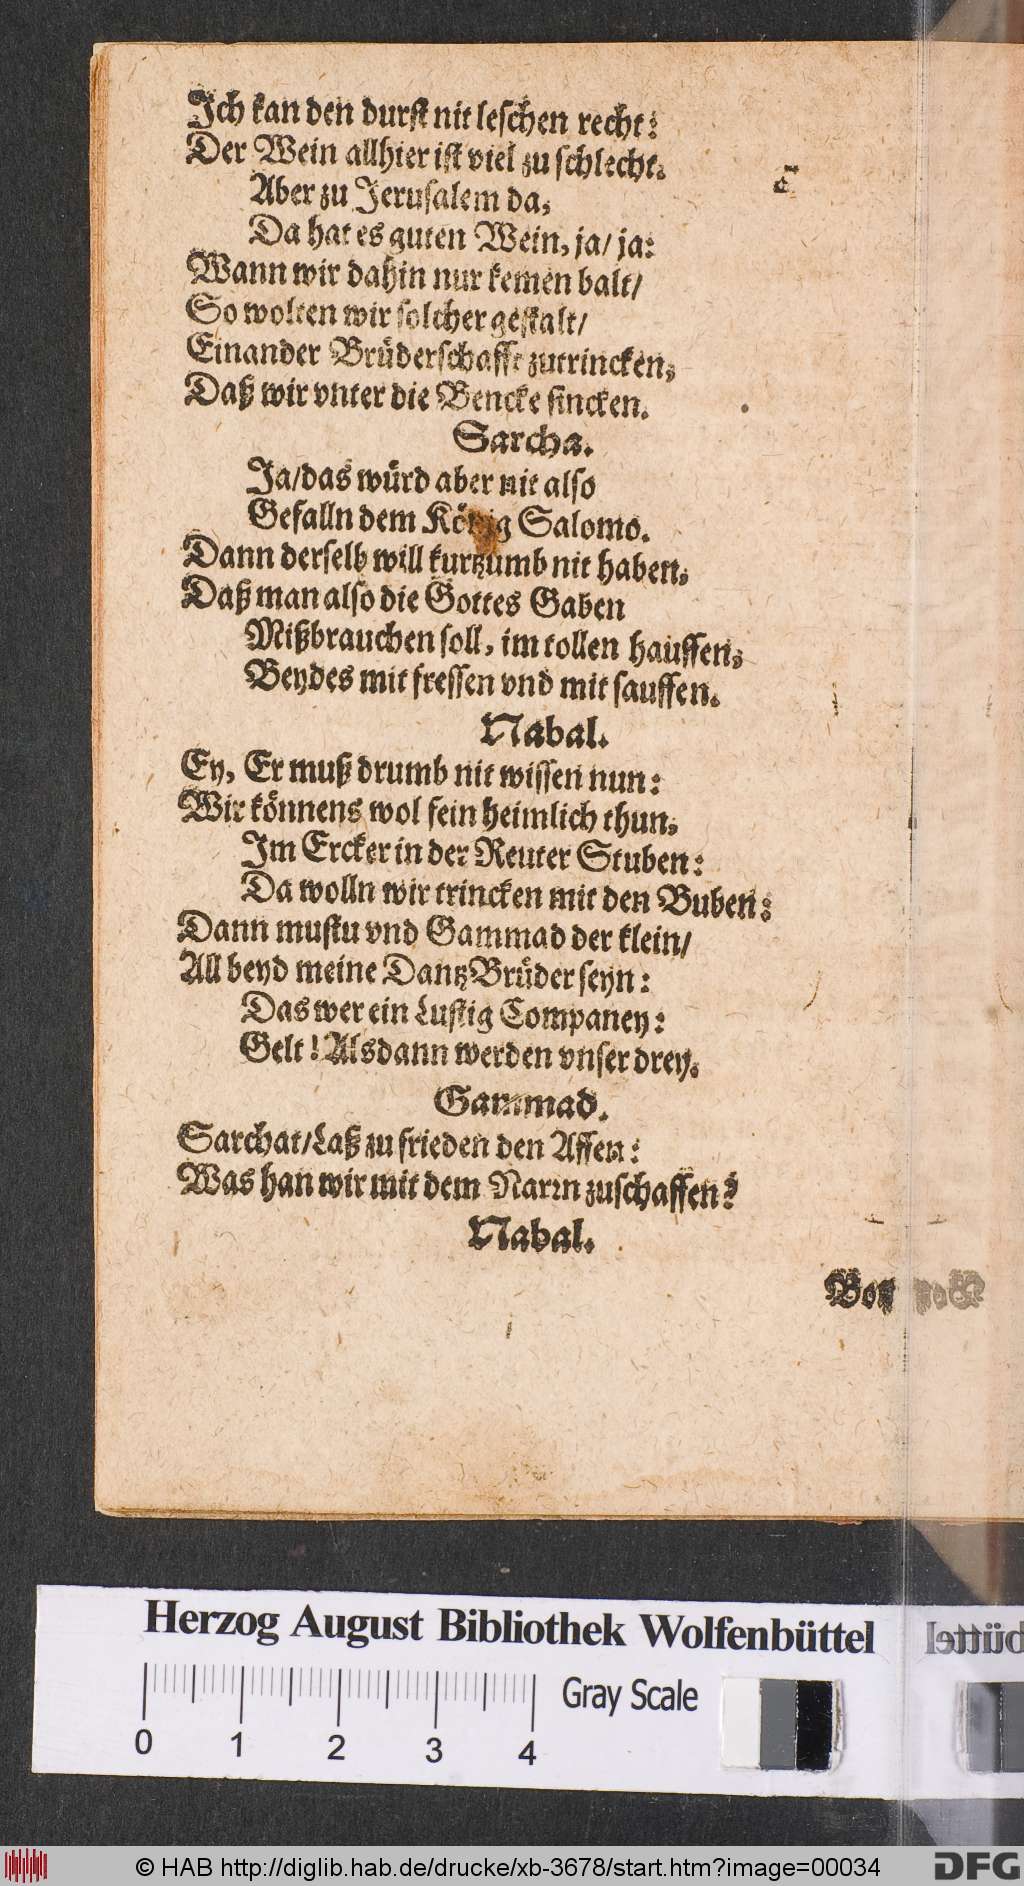 Ich kan den durst nit leschen recht:
Der Wein allhier ist viel zu schlecht.
Aber zu Jerusalem da,
Da hat es guten Wein, ja/ ja:
Wann wir dahin nur kemen balt/
So wolten wir solcher gestalt/
Einander Brüderschafft zutrincken,
Daß wir vnter die Bencke sincken.
Sarcha.
Ja/das würd aber nit also
Gefalln dem König Salomo.
Dann derselb will kurtzumb nit haben,
Daß man also die Gottes Gaben
Mißbrauchen soll, im tollen hauffen,
Beydes mit fressen vnd mit sauffen.
Nabal.
Ey, Er muß drumb nit wissen nun:
Wir könnens wol fein heimlich thun,
Im Ercker in der Reuter Stuben:
Da wolln wir trincken mit den Buben:
Dann mustu vnd Gammad der klein/
All beyd meine DantzBrüder seyn:
Das wer ein Lustig Companey:
Gelt! Alsdann werden vnser drey.
Gammad.
Sarchat/Laß zu frieden den Affen:
Was han wir mit dem Narrn zuschaffen?
Nabal.
Bot
Herzog August Bibliothek Wolfenbüttel
Gray Scale
0 1 2 3 4
© HAB http://diglib.hab.de/drucke/xb-3678/start.htm?image=00034
DFG